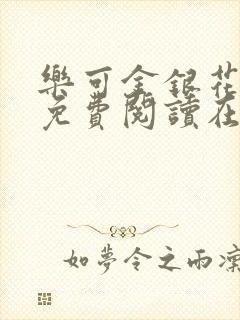 樂可金銀花
免費閱讀在
如夢令之雨凜